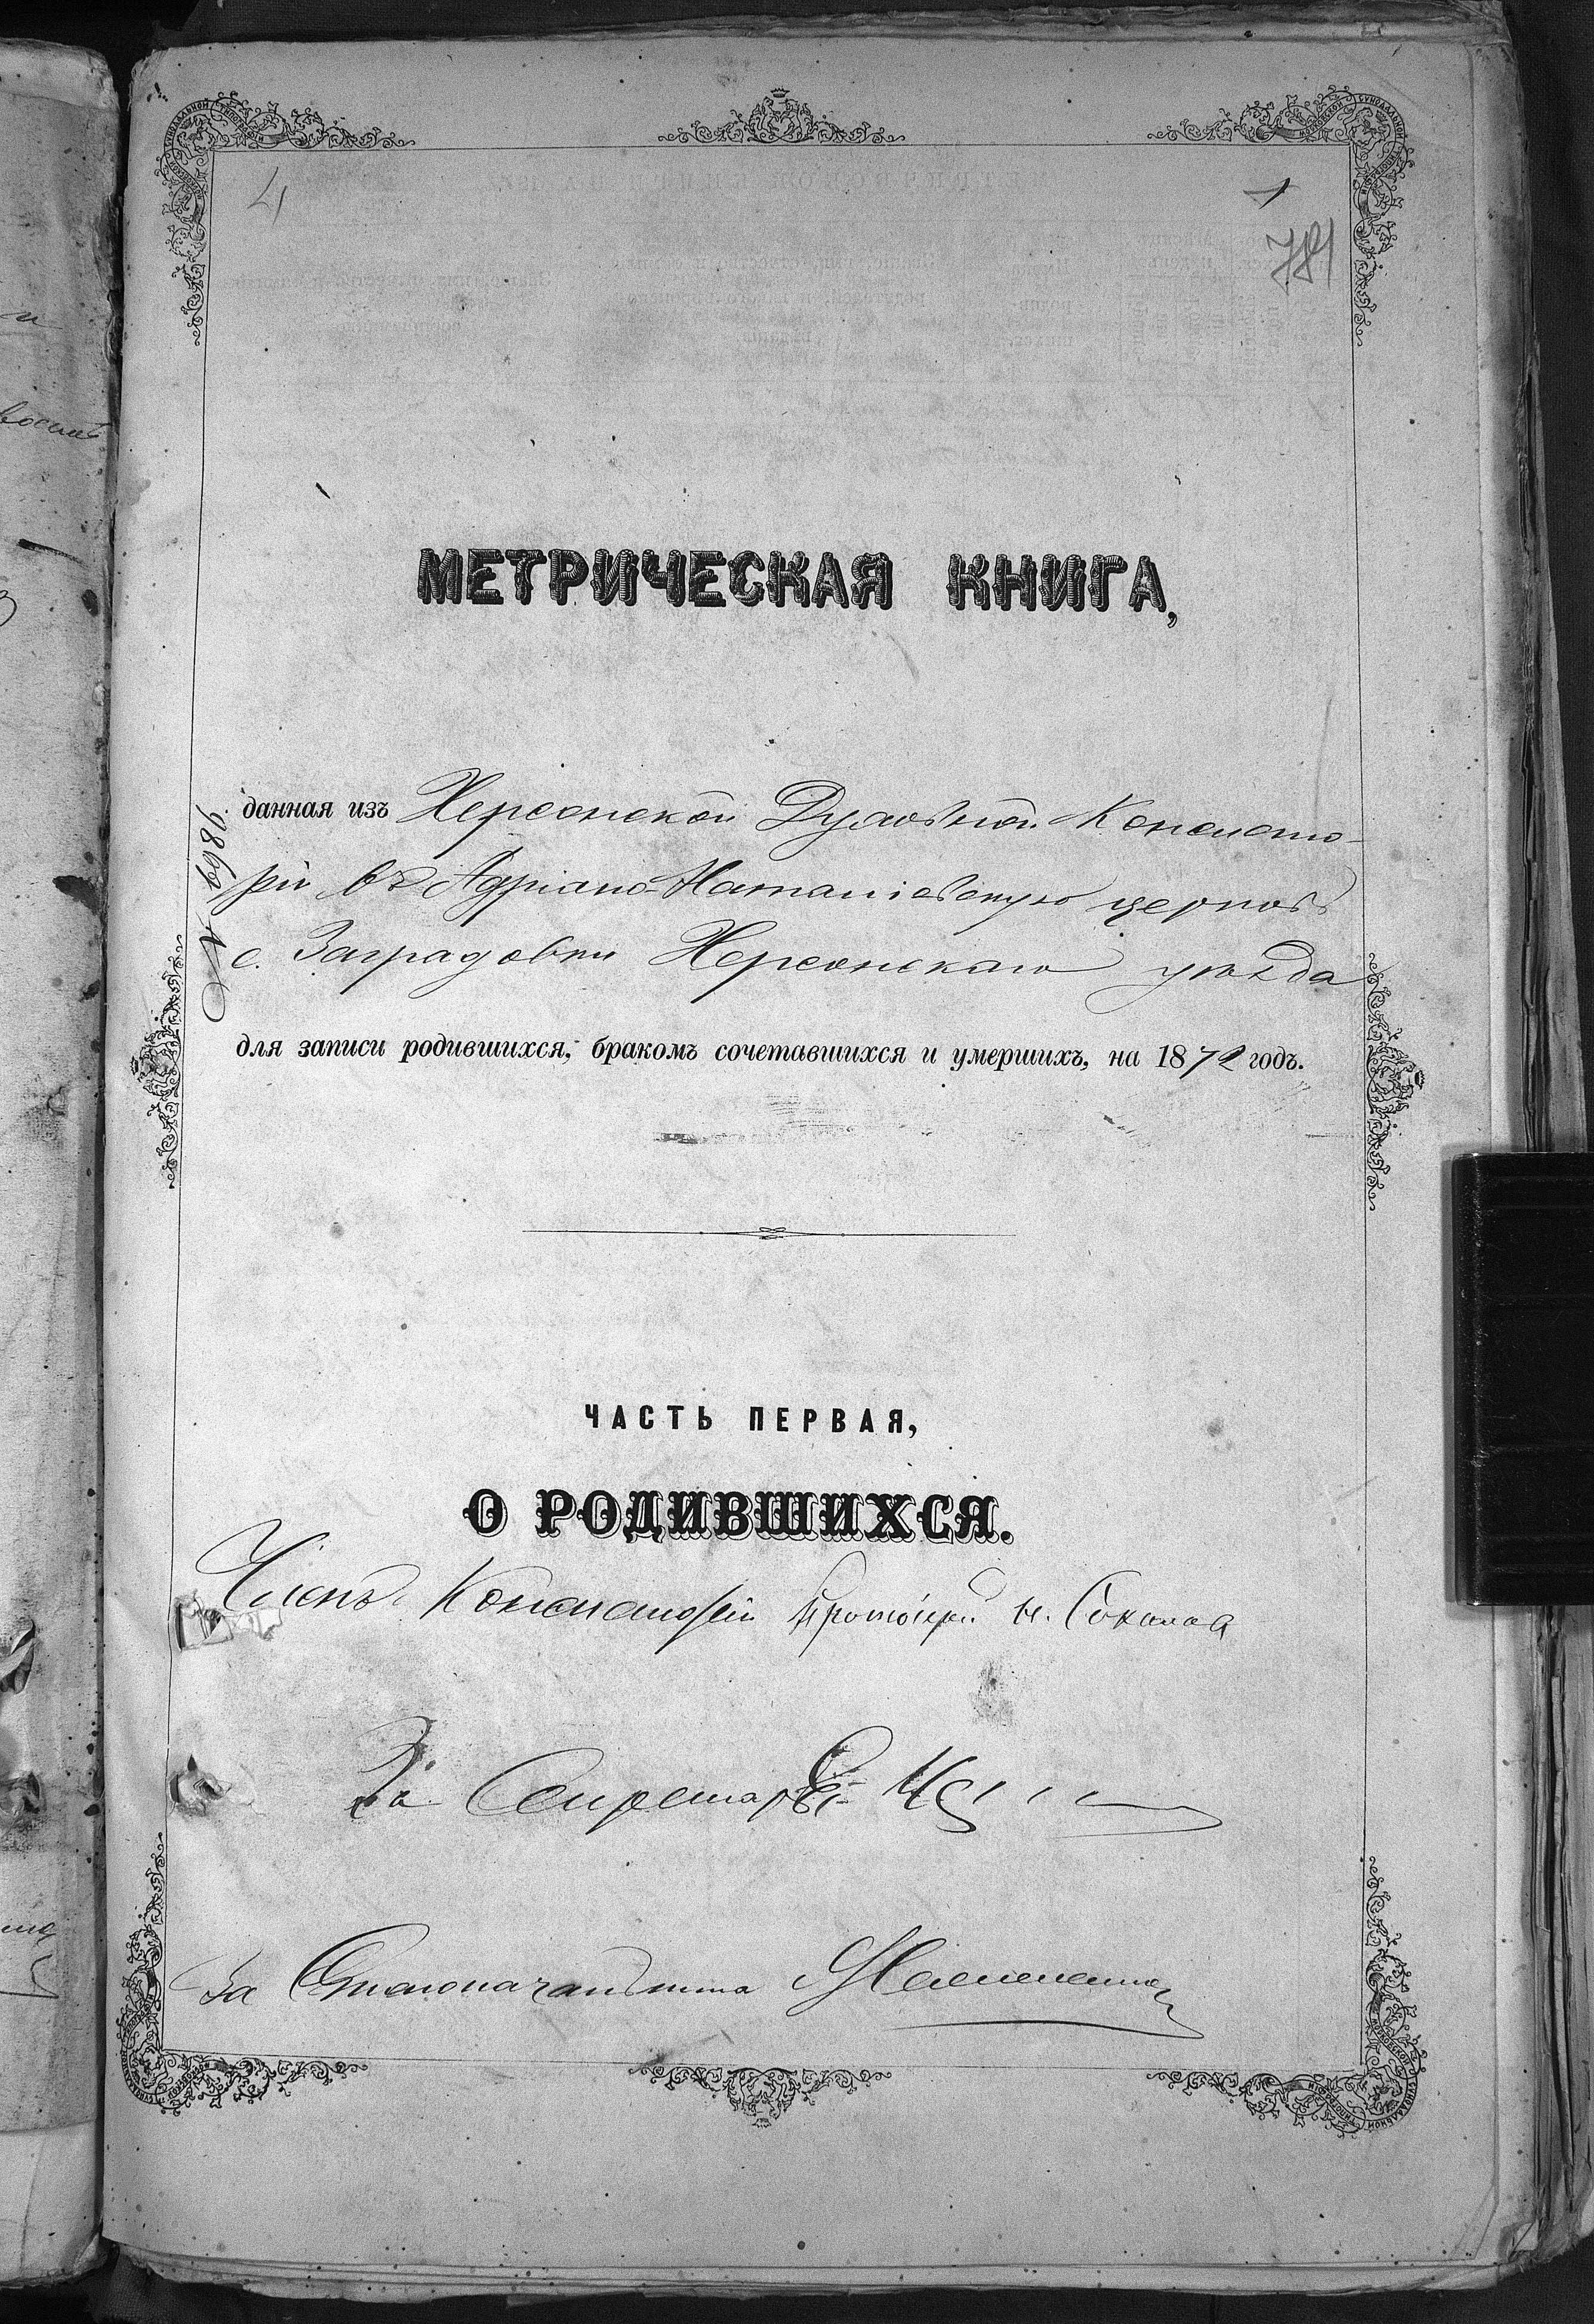 4
1
МЕТРИЧЕСКАЯ КНИГА,
данная изъ Херсонской Духовной Консисто-
ріи въ Адріано-Наталіевскую церковь
с. Заградовки Херсонскаго уѣзда
№ 9869
для записи родившихся, бракомъ сочетавшихся и умершихъ, на 1872 годъ.
ЧАСТЬ ПЕРВАЯ,
О РОДИВШИХСЯ.
Членъ Консисторіи Протоіерей Н. Соколовъ
За Секретаря
За Столоначальника